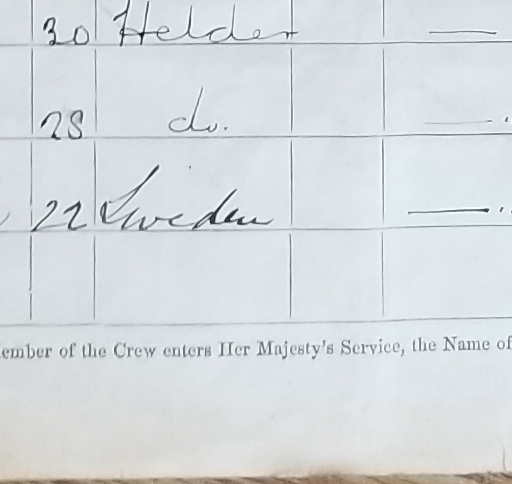 30 Helder —
28 do. — .
22 Sweden — .
ember of the Crew enters Her Majesty's Service, the Name of